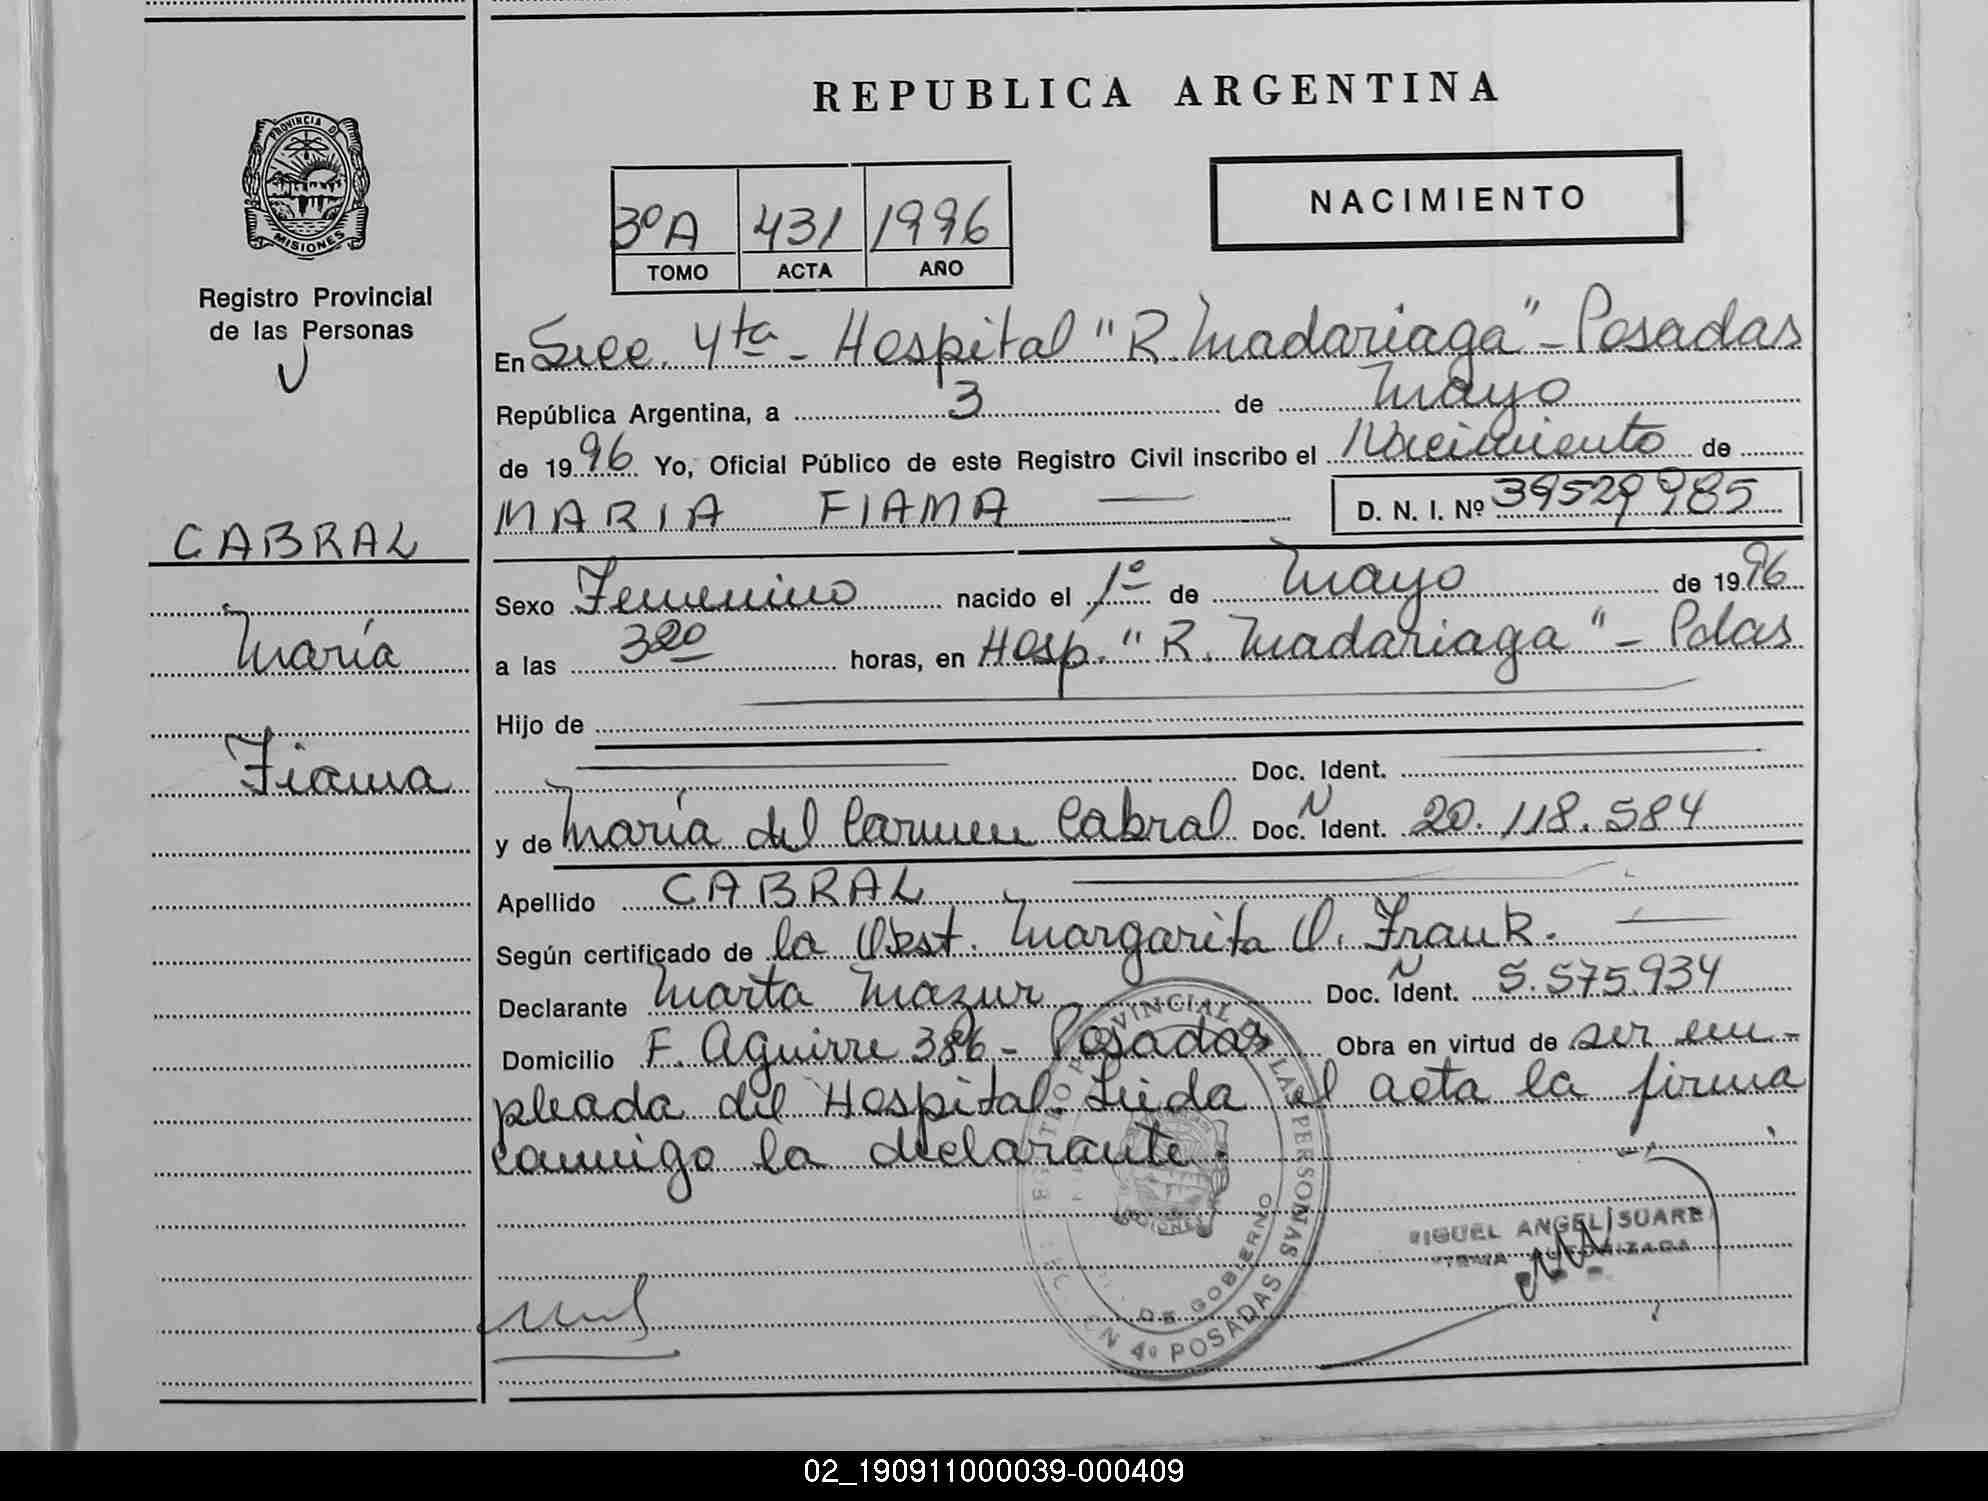 REPUBLICA ARGENTINA
PROVINCIA D
MISIONES
Registro Provincial
de las Personas
NACIMIENTO
3º A 431 1996
TOMO ACTA AÑO
En Secc. 4ta - Hospital "R. Madariaga" - Posadas
República Argentina, a 3 de Mayo
de 1996 Yo, Oficial Público de este Registro Civil inscribo el Nacimiento de
MARIA FIAMA D. N. I. Nº 39529985
CABRAL
María
Fiama
Sexo Femenino nacido el 1º de Mayo de 1996
a las 320 horas, en Hosp. "R. Madariaga" - Pdas
Hijo de
Doc. Ident.
y de María del Carmen Cabral Doc. Ident. N 20.118.584
Apellido CABRAL
Según certificado de la Obst. Margarita O. Frank.
Declarante Marta Mazur Doc. Ident. N 5.575.934
Domicilio F. Aguirre 386 - Posadas Obra en virtud de ser em-
pleada del Hospital. Leída el acta la firma
conmigo la declarante.
MIGUEL ANGEL SUARE
DE GOBIERNO
LAS PERSONAS
N 4º POSADAS
02_190911000039-000409